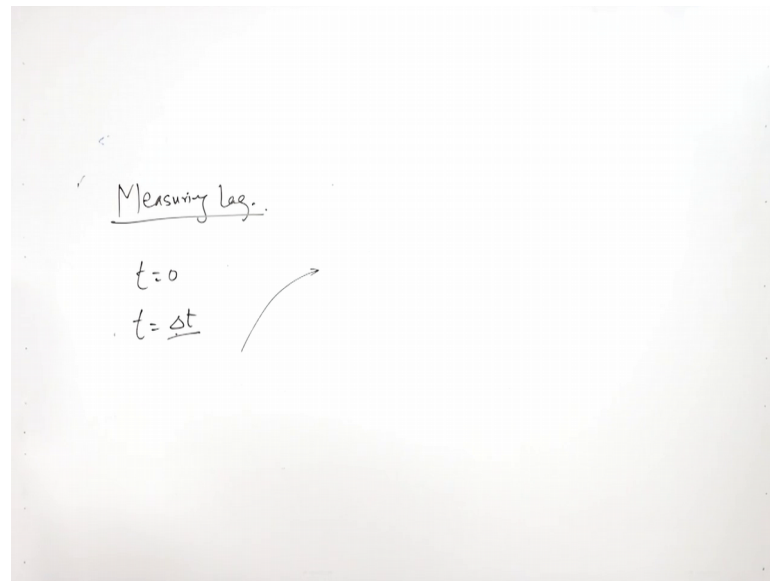 Measuring lag.
t=0
t=Δt